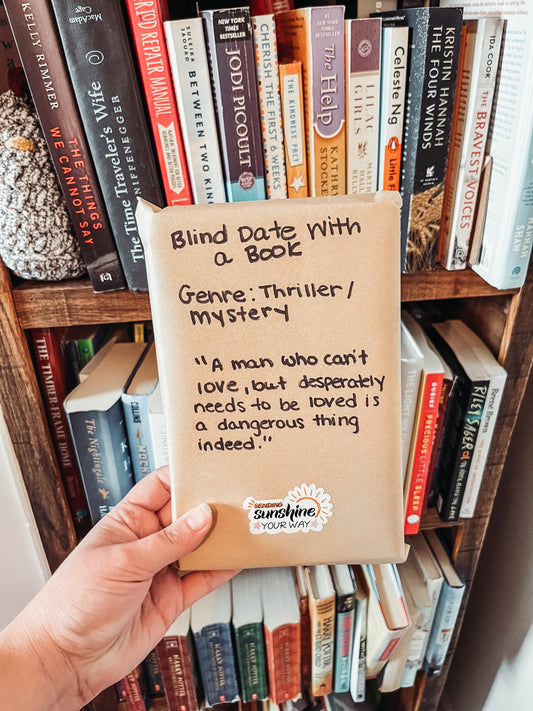 KELLY RIMMER
THE THINGS WE CANNOT SAY
MacAdam Cage
The Time Traveler's Wife
NIFFENEGGER
PERIOD REPAIR MANUAL
BETWEEN TWO KIN
NEW YORK TIMES BESTSELLER
JODI PICOULT
CHERISH THE FIRST 6 WEEKS
THE KINDNESS PACT
NEW YORK TIMES BESTSELLER
The Help
KATHRYN STOCKE
LILAC GIRLS
MARTHA
Celeste Ng
Little
KRISTIN HANNAH
THE FOUR WINDS
IDA COOK
THE BRAVEST VOICES
HANNAH SHAW
Blind Date With
a Book
Genre: Thriller/
mystery
"A man who can't
love, but desperately
needs to be loved is
a dangerous thing
indeed."
SENDING
sunshine
YOUR WAY
The Nightingale
COLLINS
PRECIOUS LITTLE SLEEP
RILEY SAGER
HARRY POTTER
HARRY POTTER
HARRY POTTER